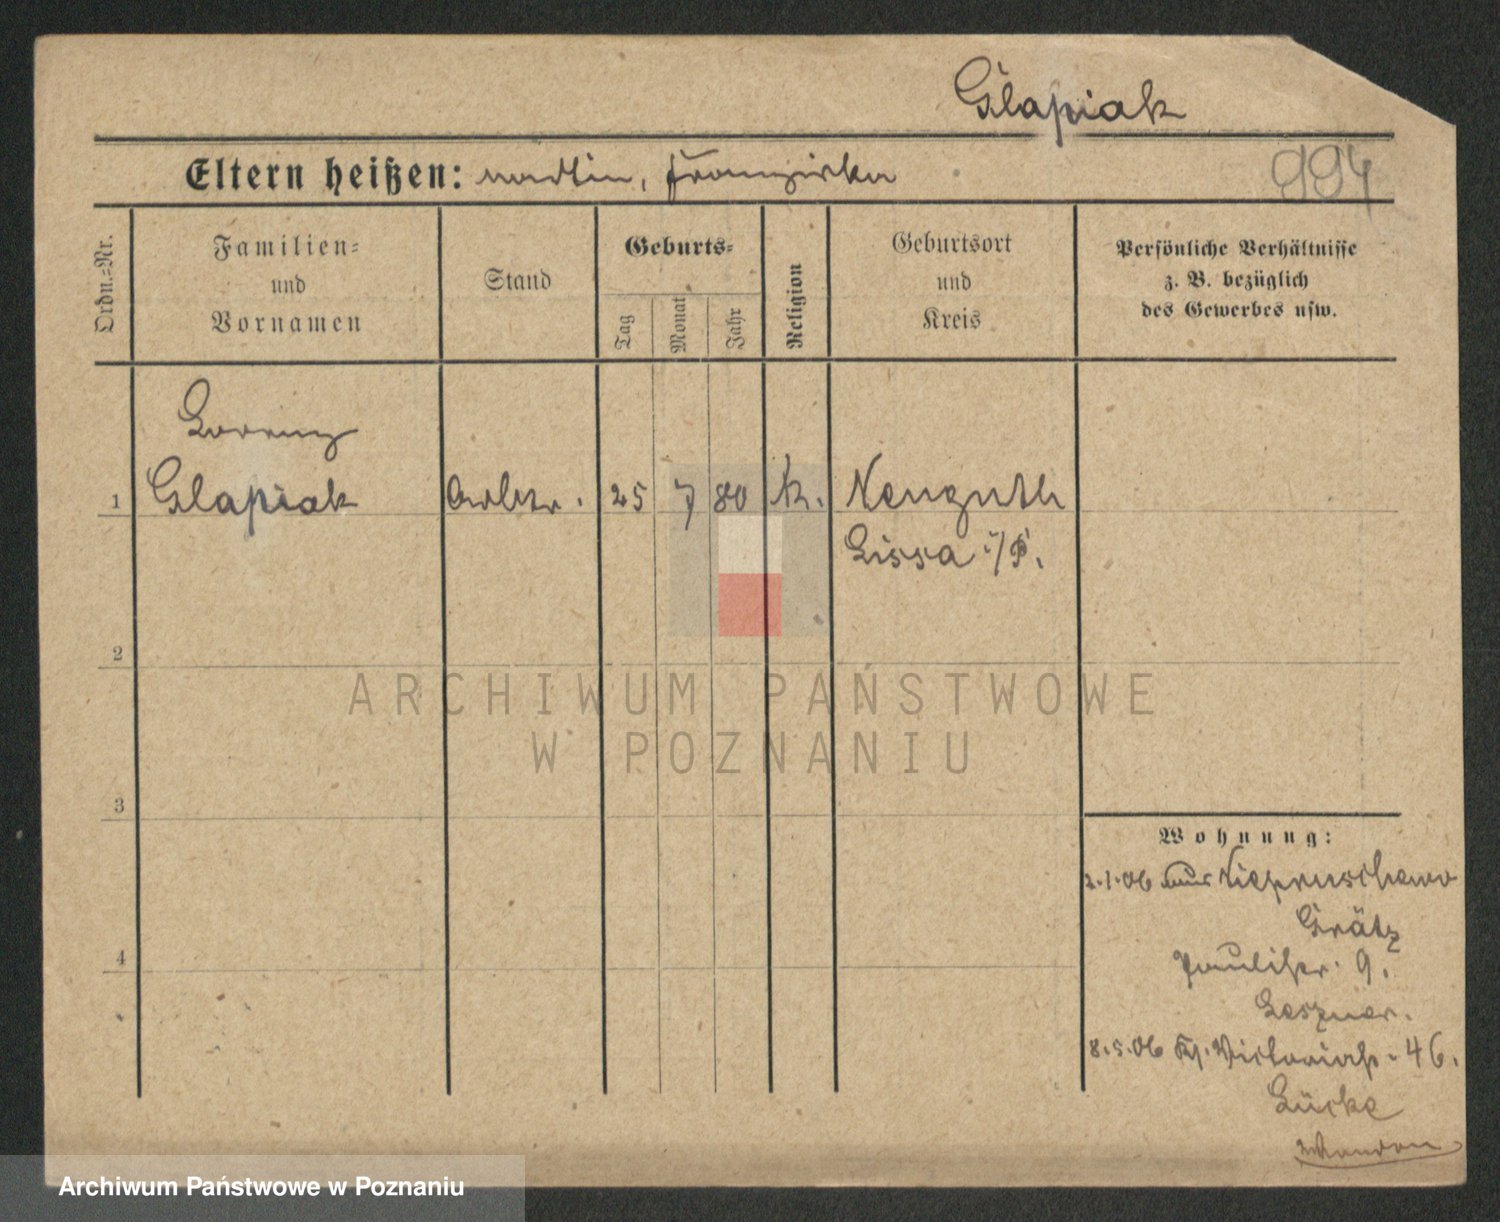 Glapiak
Eltern heißen: Martin, Franziska
994
Ordn.=Nr.
Familien=
und
Vornamen
Stand
Geburts=
Tag
Monat
Jahr
Religion
Geburtsort
und
Kreis
Persönliche Verhältnisse
z. B. bezüglich
des Gewerbes usw.
Lorenz
1 Glapiak Arbtr. 25 7 80 k. Neuguth
Lissa i/P.
2
3
4
ARCHIWUM PAŃSTWOWE
W POZNANIU
Wohnung:
2.1.06 aus Niepruschewo
Grätz
Paulikr. 9.
8.5.06 Victoriastr. 46.
Lücke
Archiwum Państwowe w Poznaniu